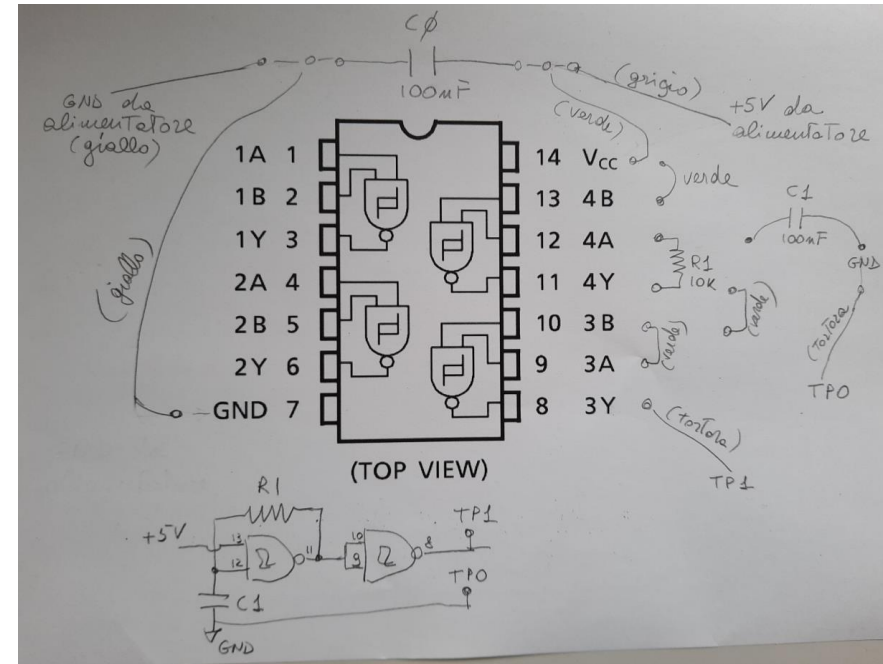 CØ
100nF
GND da
alimentatore
(giallo)
(grigio)
+5V da
alimentatore
(verde)
(giallo)
1A 1
1B 2
1Y 3
2A 4
2B 5
2Y 6
GND 7
14 VCC
13 4B
12 4A
11 4Y
10 3B
9 3A
8 3Y
verde
R1
10K
(verde)
(verde)
C1
100nF
GND
(tortora)
TP0
(tortora)
TP1
(TOP VIEW)
R1
+5V
13
12
11
10
9
8
TP1
TP0
C1
GND